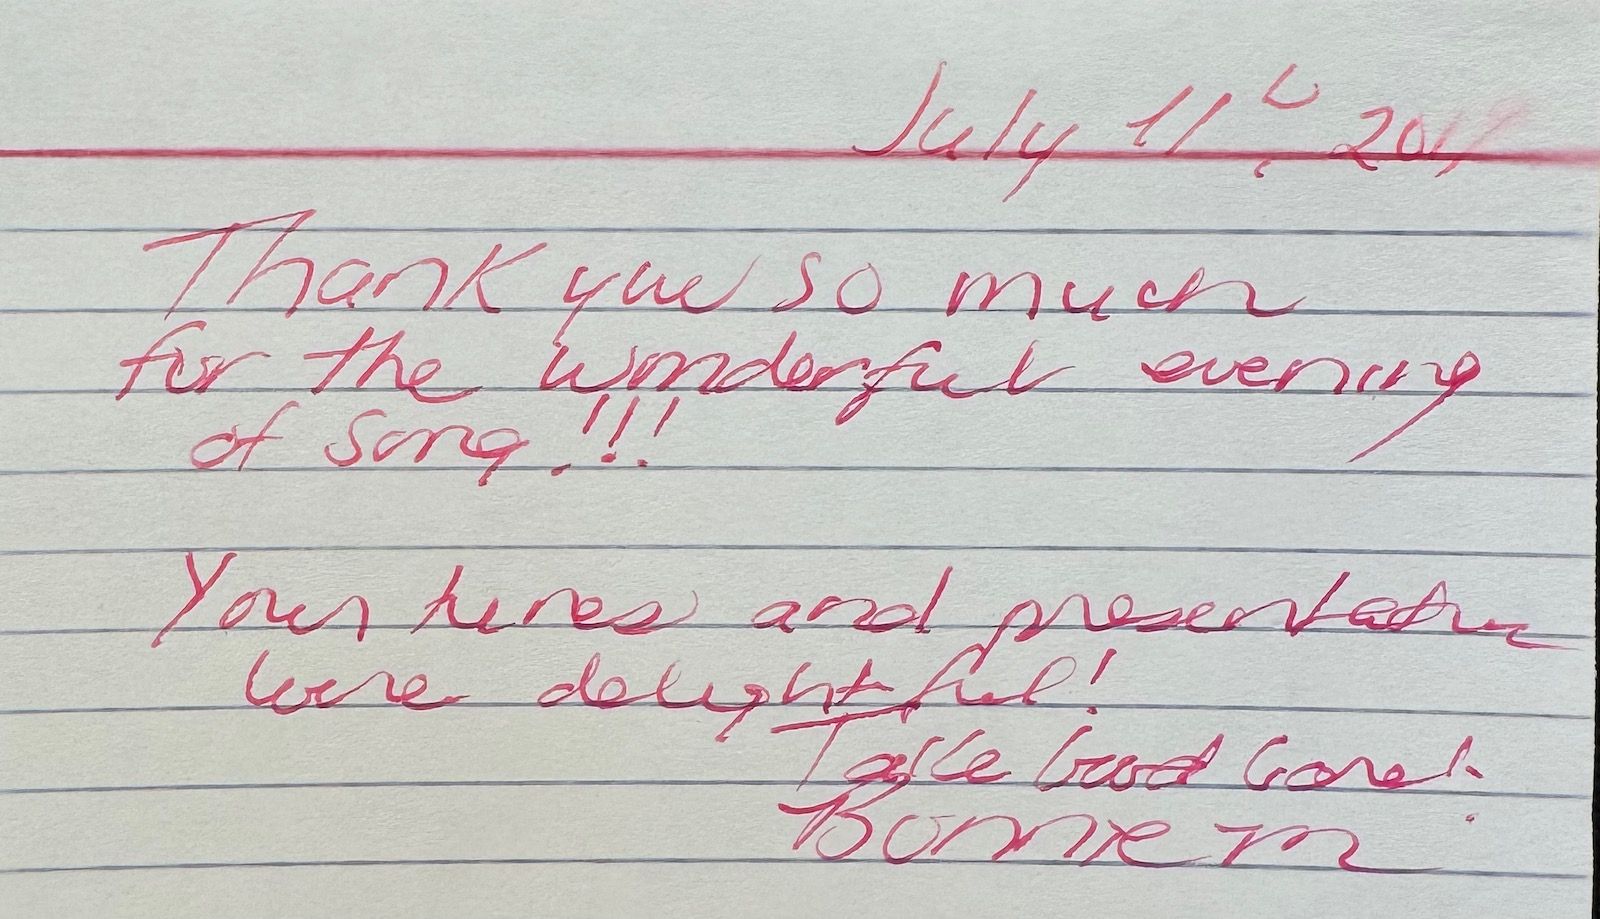 July 11th, 
Thank you so much
for the wonderful evening
of song!!!
Your tunes and presentation
were delightful!
Take Good Care!
Bonnie M